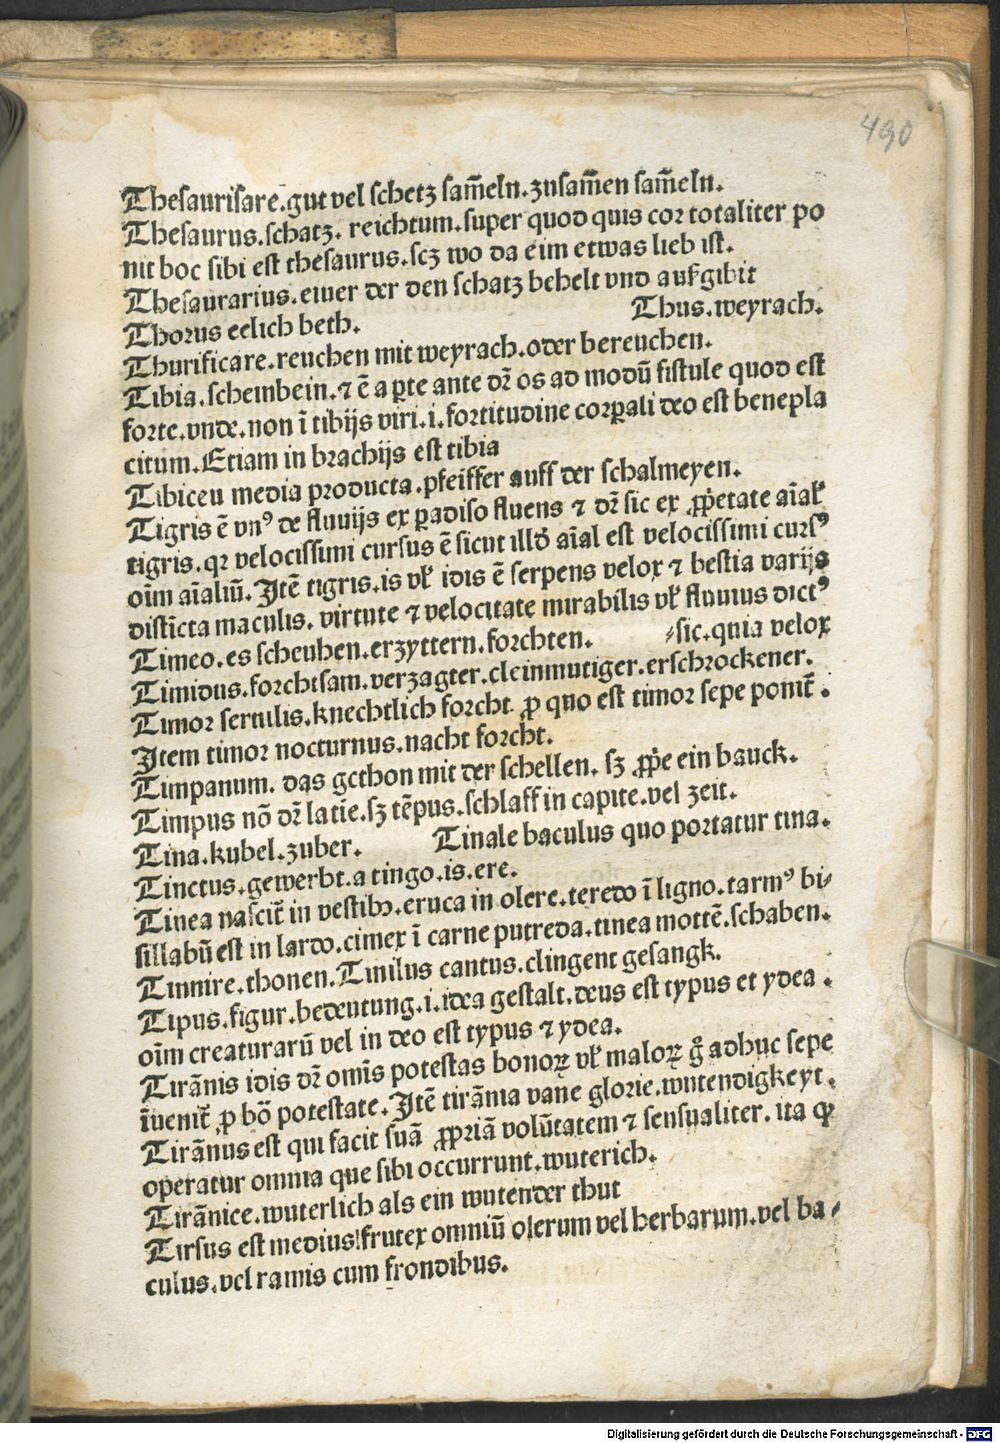 490
Thesaurisare.gut vel schetz sam̃eln.zusam̃en sam̃eln.
Thesaurus.schatz. reichtum.super quod quis cor totaliter po
nit hoc sibi est thesaurus.scz wo da eim etwas lieb ist.
Thesaurarius.einer der den schatz behelt vnd aufgibit
Thorus eelich beth. Thus.weyrach.
Thurificare.reuchen mit weyrach.oder bereuchen.
Tibia.scheinbein.⁊ ē a ꝑte ante dr̄ os ad modū fistule quod est
forte.vnde.non ī tibijs viri.i.fortitudine corꝑali deo est benepla
citum.Etiam in brachijs est tibia
Tibiceu media producta.pfeiffer auff der schalmeyen.
Tigris ē vnꝰ de fluuijs ex ꝑadiso fluens ⁊ dr̄ sic ex ꝓp̄etate aīaƚ
tigris.qꝛ velocissimi cursus ē sicut illđ aīal est velocissimi cursꝰ
oīm aīaliū.Itē tigris.is vƚ idis ē serpens velox ⁊ bestia varijs
distīcta maculis. virtute ⁊ velocitate mirabilis vƚ fluuius dictꝰ
Timeo.es scheuhen.erzyttern.forchten. ⸗sic.quia velox
Timidus.forchtsam.verzagter.cleinmutiger.erschrockener.
Timor seruilis.knechtlich forcht. ꝓ quo est timor sepe ponit̄.
Item timor nocturnus.nacht forcht.
Timpanum. das gethon mit der schellen. sꝫ ꝓp̄e ein bauck.
Timpus nō dr̄ latie.sꝫ tēpus.schlaff in capite.vel zeit.
Tina.kubel.zuber. Tinale baculus quo portatur tina.
Tinctus.gewerbt.a tingo.is.ere.
Tinea nascit̄ in vestibꝫ.eruca in olere.teredo ī ligno.tarmꝰ bi⸗
sillabū est in lardo.cimex ī carne putreda.tinea mottē.schaben.
Tinnire.thonen.Tinilus cantus.clingent gesangk.
Tipus.figur.bedeutung.i.idea gestalt.deus est typus et ydea.
oīm creaturarū vel in deo est typus ⁊ ydea.
Tirānis idis dr̄ omīs potestas bonoꝝ vƚ maloꝝ gͦ adhuc sepe
īuenit̄ ꝓ bō potestate.Itē tirānia vane glorie.wutendigkeyt.
Tirānus est qui facit suā ꝓpriā volūtatem ⁊ sensualiter.ita ꝙ
operatur omnia que sibi occurrunt.wuterich.
Tirānice.wuterlich als ein wutender thut
Tirsus est medius frutex omniū olerum vel herbarum.vel ba⸗
culus.vel ramis cum frondibus.
Digitalisierung gefördert durch die Deutsche Forschungsgemeinschaft - DFG